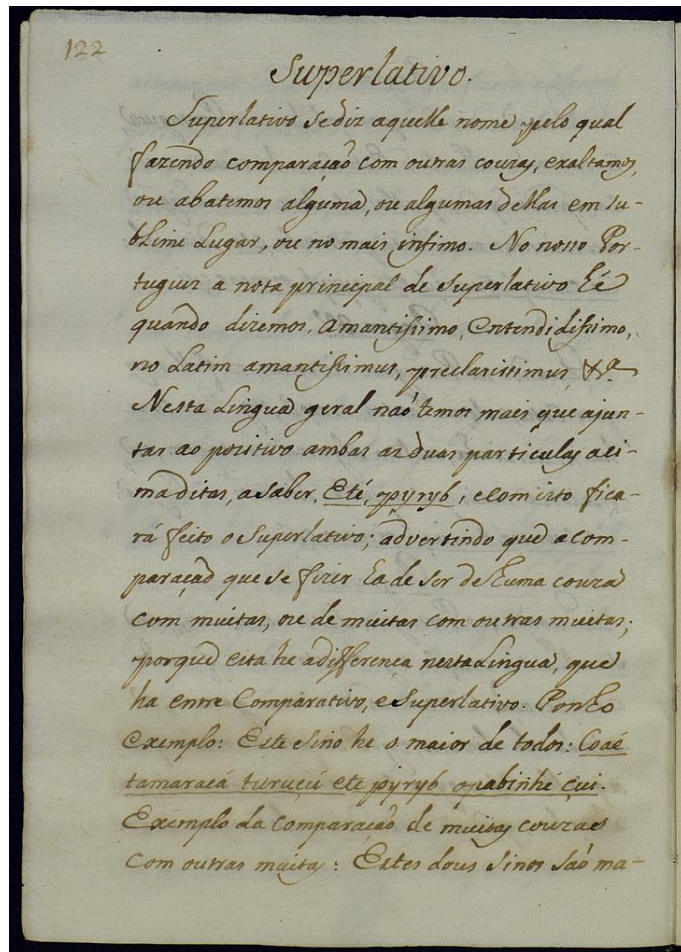 122
Superlativo.
Superlativo se diz aquelle nome, pelo qual
fazendo comparação com outras couzas, exaltamos,
ou abatemos alguma, ou algumas dellas em su-
blime Lugar, ou no mais infimo. No nosso Por-
tuguez a nota principal de Superlativo hé
quando dizemos, Amantissimo, Entendidissimo,
no Latim amantissimus, preclarissimus &.ª
Nesta Lingua geral naó temos mais que ajun-
tar ao pozitivo ambas as duas particulas aci-
ma ditas, a saber, Eté, pyryb, e com isto fica-
rá feito o Superlativo; advertindo que a com-
paraçaõ que se fizer ha de ser de huma couza
com muitas, ou de muitas com outras muitas;
porque esta he a differença nesta Lingua, que
ha entre Comparativo, e Superlativo. Ponho
exemplo: Este Sino he o maior de todos: Coaé
tamaracá turuçú eté pyryb opabinhé çui.
Exemplo da Comparação de muitas couzas
com outras muitas: Estes dous Sinos saó ma-